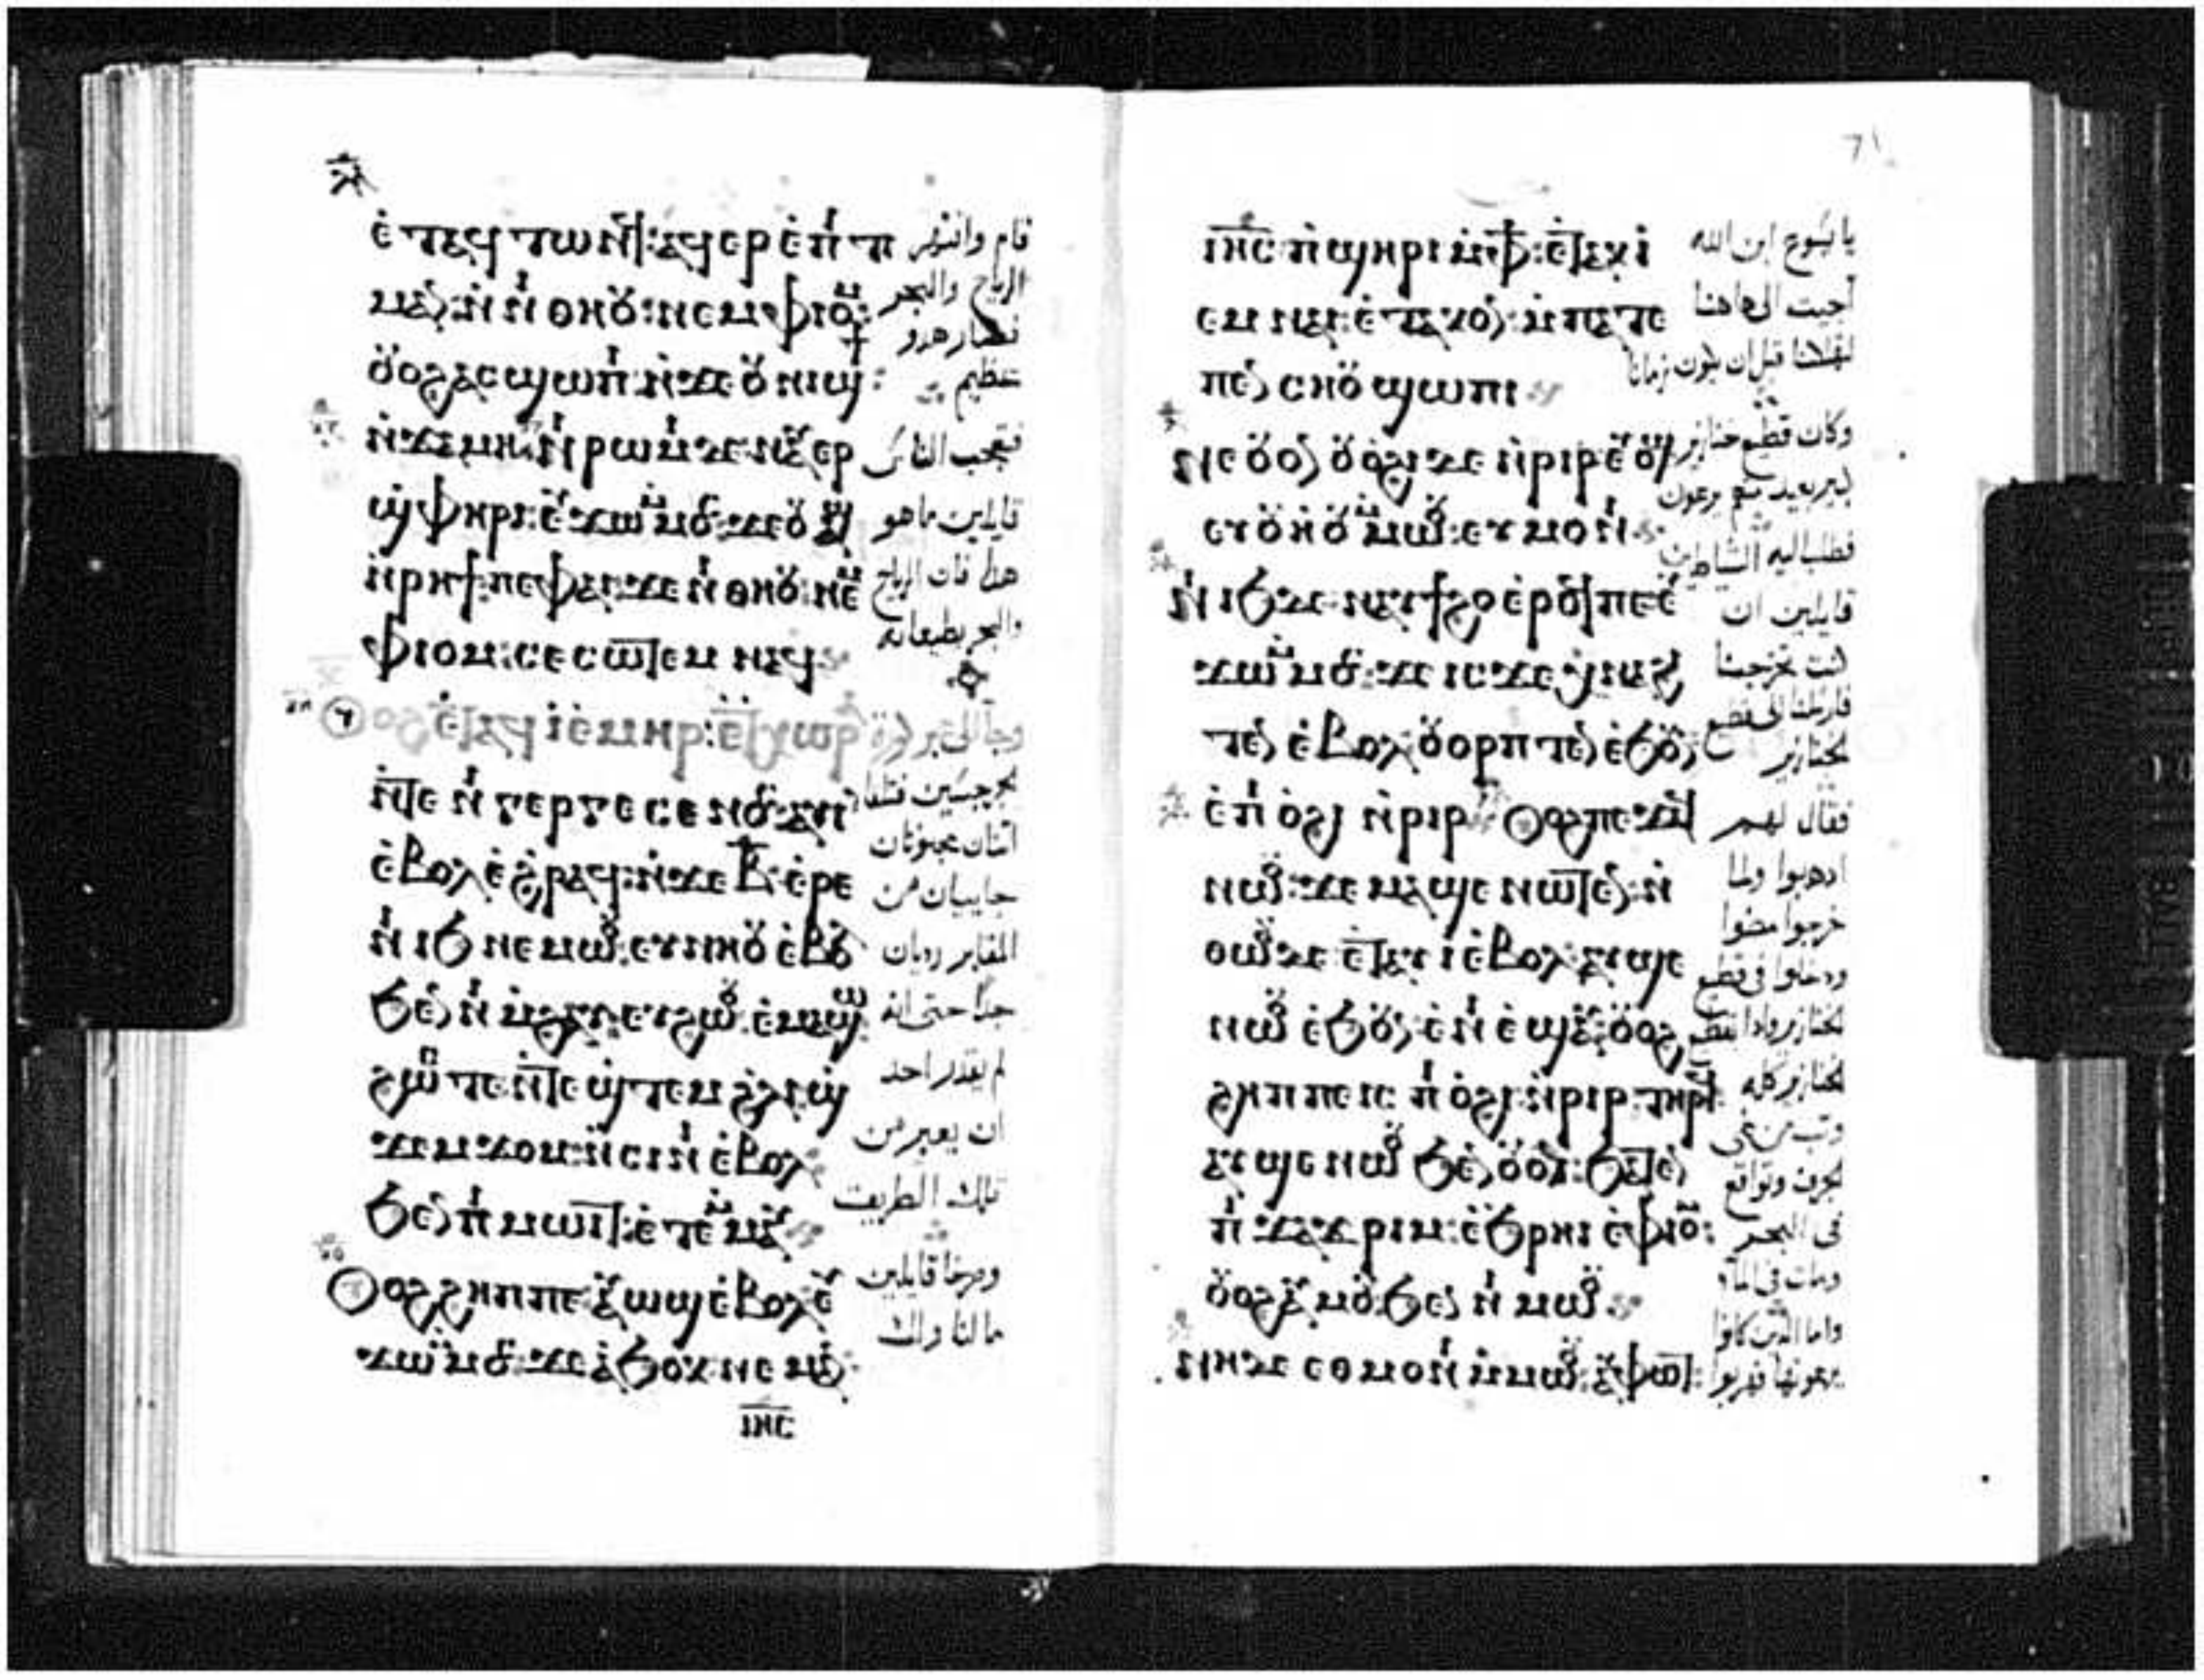 ⲉⲧⲁϥⲧⲱⲛϥ ⲁϥⲉⲣⲉⲡⲓⲧⲓ
ⲙⲁⲛ ⲛⲛⲓⲑⲏⲟⲩ ⲛⲉⲙ ⲫⲓⲟⲙ
ⲟⲩⲟϩ ⲁⲥϣⲱⲡⲓ ⲛϫⲉ ⲟⲩⲛⲓϣϯ
ⲛϫⲁⲙⲏ ⲛⲓⲣⲱⲙⲓ ⲇⲉ ⲛⲁⲩⲉⲣ
ϣⲫⲏⲣⲓ ⲉⲩϫⲱ ⲙⲙⲟⲥ ϫⲉ ⲟⲩⲁϣ
ⲛⲣⲏϯ ⲡⲉ ⲫⲁⲓ ϫⲉ ⲛⲓⲑⲏⲟⲩ ⲛⲉⲙ
ⲫⲓⲟⲙ ⲥⲉⲥⲱⲧⲉⲙ ⲛⲁϥ
ⲟⲩⲟϩ ⲉⲧⲁϥⲓ ⲉⲙⲏⲣ ⲉⲧⲭⲱⲣⲁ
ⲛⲧⲉ ⲛⲓⲅⲉⲣⲅⲉⲥⲉⲛⲟⲥ ⲁⲩⲓ
ⲉⲃⲟⲗ ⲉϩⲣⲁϥ ⲛϫⲉ ⲃ̅ ⲉⲣⲉ
ⲛⲓⲓϧ ⲛⲉⲙⲱⲟⲩ ⲉⲩⲛⲏⲟⲩ ⲉⲃⲟⲗ
ϧⲉⲛ ⲛⲓⲙϩⲁⲩ ⲉⲩϩⲱⲟⲩ ⲉⲙⲁϣⲱ
ϩⲱⲥⲧⲉ ⲛⲧⲉϣⲧⲉⲙ ϩⲗⲓ ϣ
ϫⲉⲙϫⲟⲙ ⲛⲥⲓⲛⲓ ⲉⲃⲟⲗ
ϧⲉⲛ ⲡⲓⲙⲱⲓⲧ ⲉⲧⲉⲙⲙⲁⲩ
ⲟⲩⲟϩ ϩⲏⲡⲡⲉ ⲁⲩⲱϣ ⲉⲃⲟⲗ ⲉⲩ
ϫⲱ ⲙⲙⲟⲥ ϫⲉ ⲁϧⲟⲕ ⲛⲉⲙⲁⲛ
ⲓⲏ̅ⲥ̅
قام وانتهر
الرياح والبحر
فصار هدو
عظيم
فتعجب الناس
قايلين ما هو
هذا فان الرياح
والبحر يطيعانه
وجا الى عبر كورة
الجرجسيين فتلقا
اثنان مجنونان
جاييان من
المقابر رديان
جدا حتى انه
لم يقدر احد
ان يعبر من
تلك الطريق
وصرخا قايلين
ما لنا ولك
ⲓⲏ̅ⲥ̅ ⲡϣⲏⲣⲓ ⲙⲫϯ ⲉⲧⲁⲕⲓ
ⲉⲙⲛⲁⲓ ⲉⲧⲁⲕⲟⲛ ⲙⲡⲁⲧⲉ
ⲡⲉⲛⲥⲏⲟⲩ ϣⲱⲡⲓ
ⲛⲉ ⲟⲩⲟⲛ ⲟⲩⲟϩⲓ ⲇⲉ ⲛⲣⲓⲣ ⲉⲟϣ
ⲉⲩⲟⲩⲏⲟⲩ ⲙⲙⲱⲟⲩ ⲉⲩⲙⲟⲛⲓ
ⲛⲓⲓϧ ⲇⲉ ⲛⲁⲩϯϩⲟ ⲉⲣⲟϥ ⲡⲉ ⲉⲩ
ϫⲱ ⲙⲙⲟⲥ ϫⲉ ⲓⲥϫⲉ ⲭⲛⲁϩⲓ
ⲧⲉⲛ ⲉⲃⲟⲗ ⲟⲩⲟⲣⲡⲧⲉⲛ ⲉϧⲟⲩⲛ
ⲉⲡⲓⲟϩⲓ ⲛⲣⲓⲣ ⲟⲩⲟϩ ⲡⲉϫⲁϥ
ⲛⲱⲟⲩ ϫⲉ ⲙⲁϣⲉ ⲛⲱⲧⲉⲛ ⲛ
ⲑⲱⲟⲩ ⲇⲉ ⲉⲧⲁⲩⲓ ⲉⲃⲟⲗ ⲁⲩϣⲉ
ⲛⲱⲟⲩ ⲉϧⲟⲩⲛ ⲉⲛⲓⲉϣⲁⲩ ⲟⲩⲟϩ
ϩⲏⲡⲡⲉ ⲓⲥ ⲡⲓⲟϩⲓ ⲛⲣⲓⲣ ⲧⲏⲣϥ
ⲁⲩϣⲉ ⲛⲱⲟⲩ ϧⲉⲛ ⲟⲩⲟⲓ ϧⲁⲧⲉⲛ
ⲡⲓϫⲁϫⲣⲓⲙ ⲉϧⲣⲏⲓ ⲉⲫⲓⲟⲙ
ⲟⲩⲟϩ ⲁⲩⲙⲟⲩ ϧⲉⲛ ⲛⲓⲙⲱⲟⲩ
ⲛⲏ ⲇⲉ ⲉⲑⲙⲟⲛⲓ ⲙⲙⲱⲟⲩ ⲁⲩⲫⲱⲧ
يا يسوع ابن الله
أجيت الى هاهنا
لتهلكنا قبل ان يكون زماننا
وكان قطيع خنازير
كبير بعيد منهم يرعون
فطلب اليه الشياطين
قايلين ان
كنت تخرجنا
فارسلنا الى قطيع
الخنازير
فقال لهم
اذهبوا ولما
خرجوا مضوا
ودخلوا في قطيع
الخنازير واذا بقطيع
الخنازير كله
وثب من على
الجرف وتواقع
في البحر
ومات في الماء
واما الذين كانوا
يرعونها فهربوا